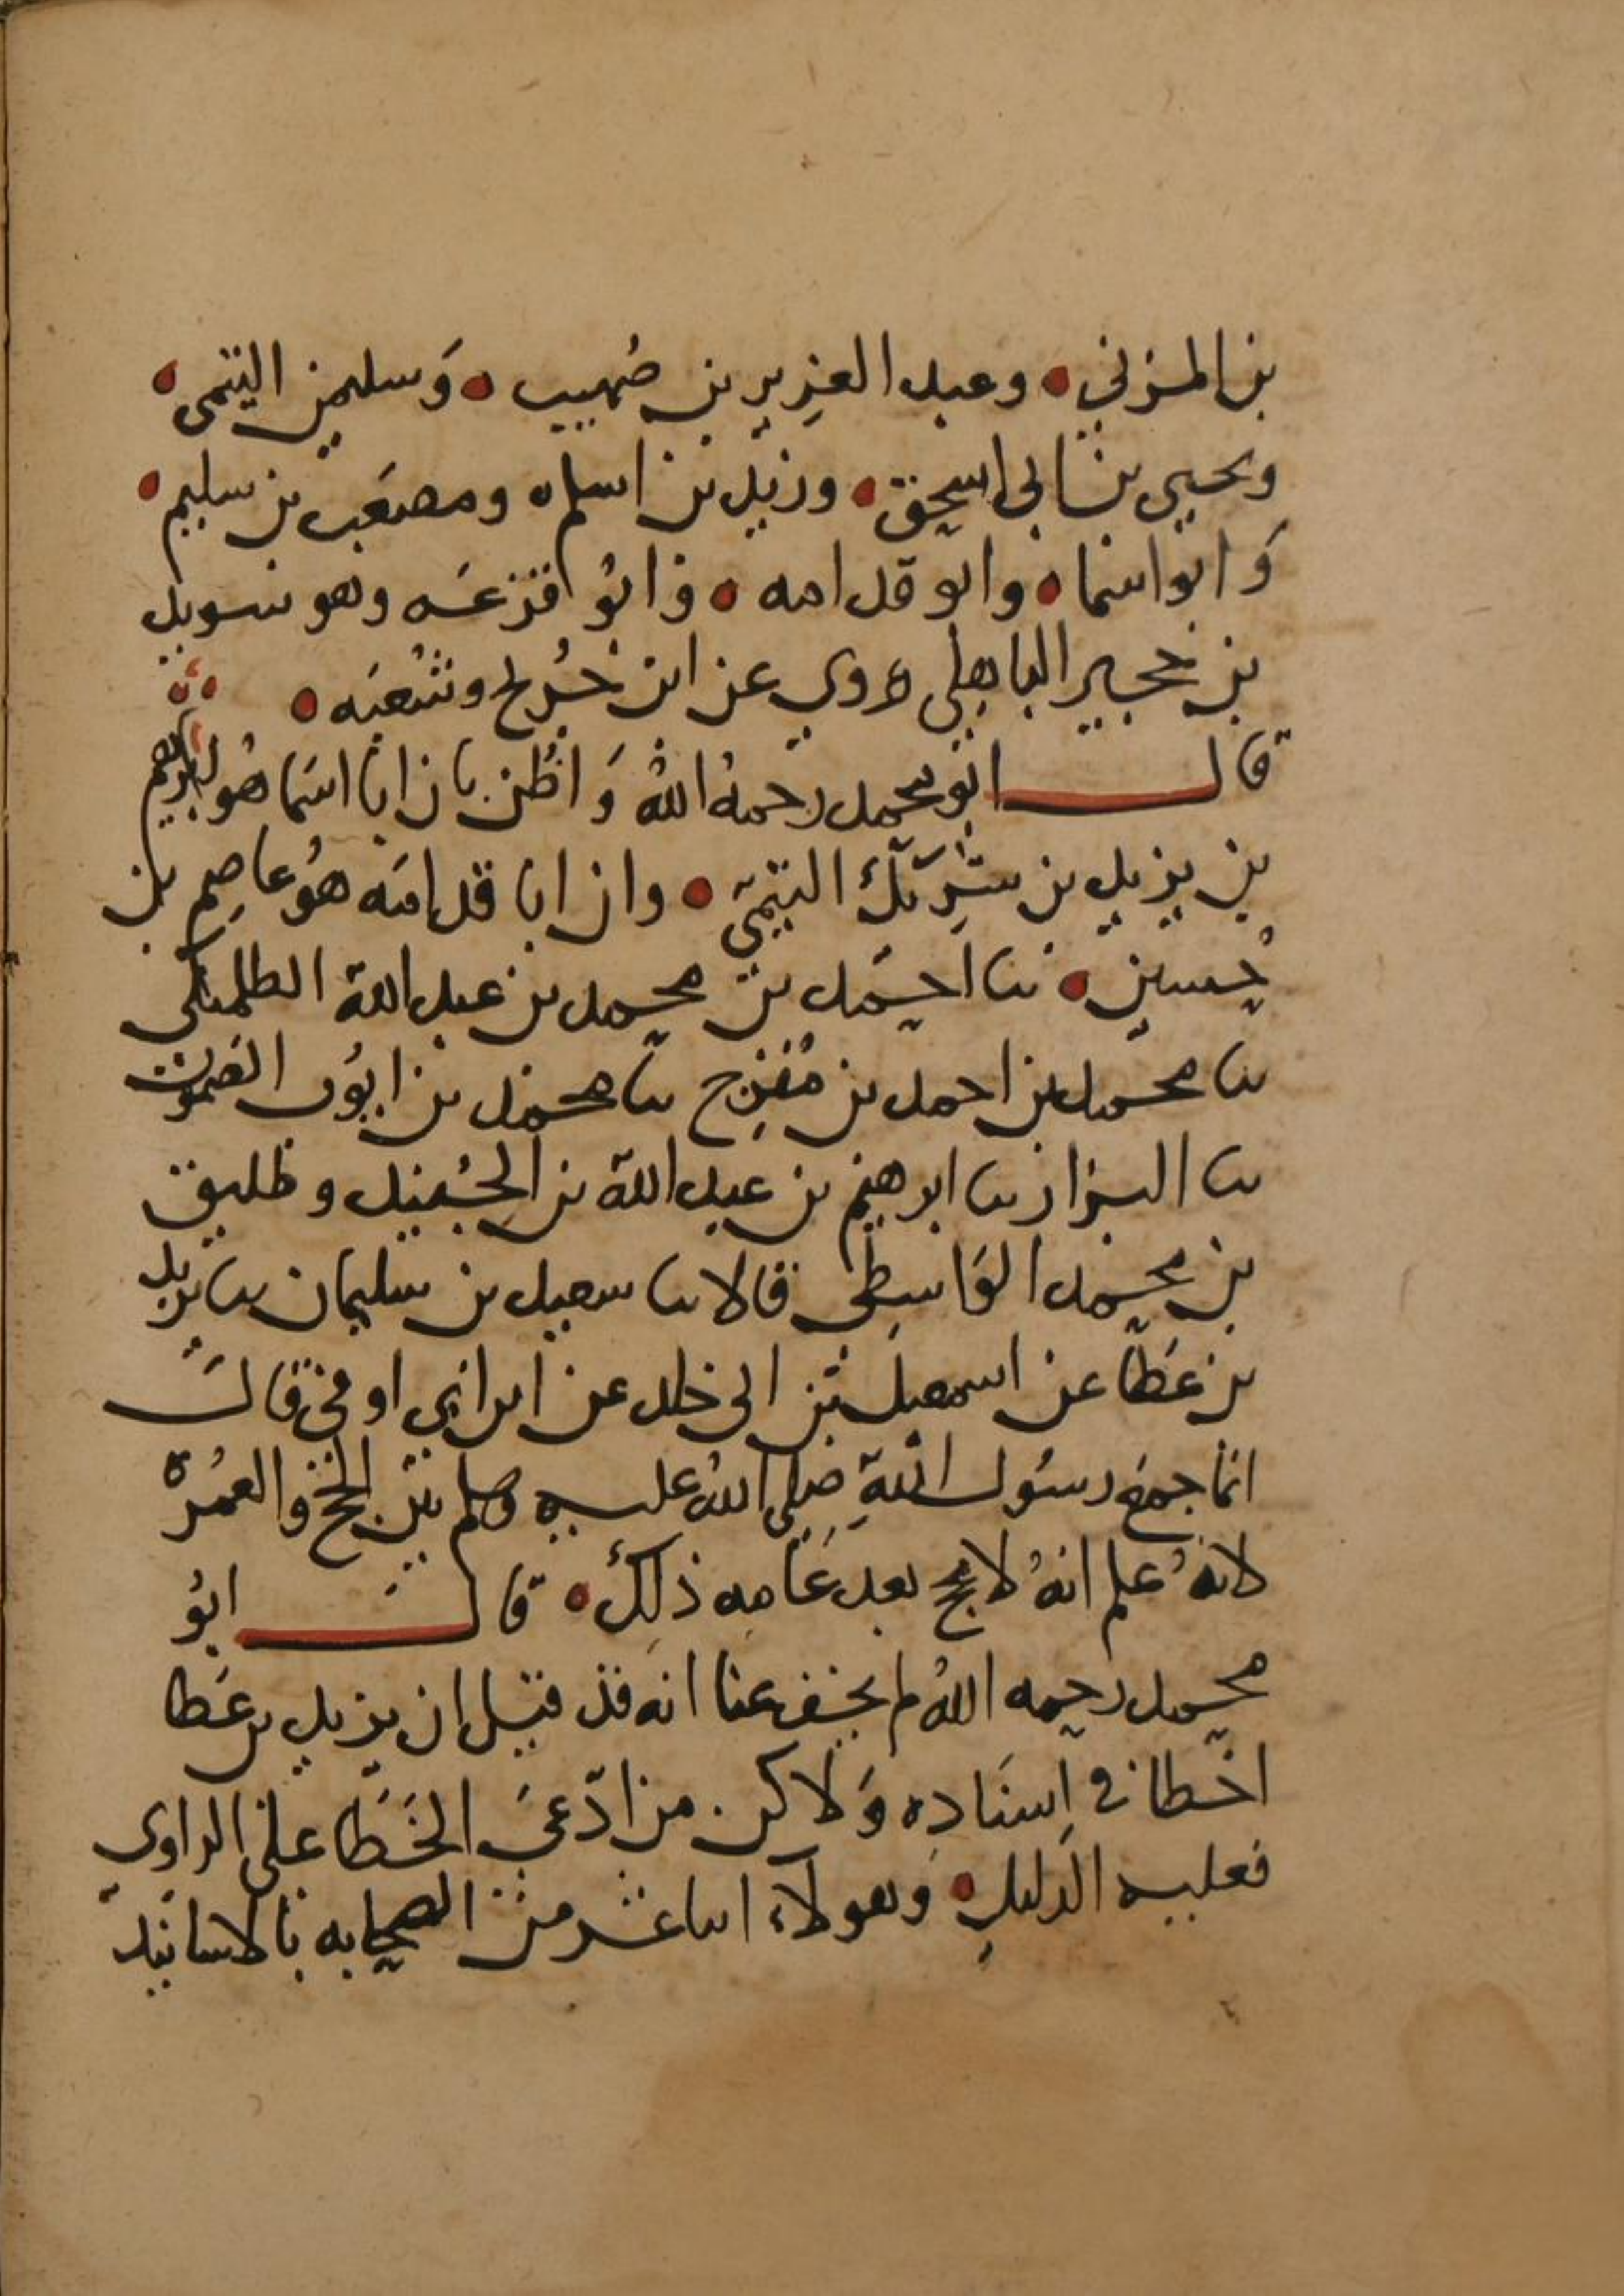 بن المزني ه وعبد العزيز بن صُهيب ه وَسليمن التيمى ه
ويحيى بن ابى اسحق ه وزيد بن اسلم ه ومصعَب بن سليم ه
وَابو اسما ه وابو قدامه ه وَابُو قزعَه وهو سويد
بن حجير الباهلى روي عن ابن جُريج وشُعبَه ه
قال ابو محمد رحمهُ اللهُ وَاظُن بان ابا اسَما هُو ابرهيم
بن يزيد بن شرِيَك التيمَي ه وان ابا قدامَه هُو عاصِم بن
حُسين ه ثنا احمَد بن محمد بن عبد الله الطلمنكى
ثنا محمد بن احمد بن مُفرِج ثنا محمد بن ايوُب الصَموت
ثنا البزار ثنا ابرهيم بن عبد الله بن الجُنيد وطليق
بن محمد الوَاسِطي قالا ثنا سعيد بن سليمان ثنا يزيد
بن عَطا عن اسمعيل بن ابى خلد عن ابن ابي اوفى قالَ
انما جمعَ رسُول اللهِ صلى اللهُ عليه وسلم بين الحج والعمُرة
لانهُ علم انهُ لا يحج بعد عَامِه ذلِكَ ه قال ابُو
محمد رحمه اللهُ لم يخف عنا انه قد قيل ان يزيد بن عَطا
اخطا في اِسنَادِه وَلاكن من ادّعىَ الخَطَا على الراوي
فعليه الدَليلِ ه وهولآء اثنا عشر من الصحابه بالاسانيد